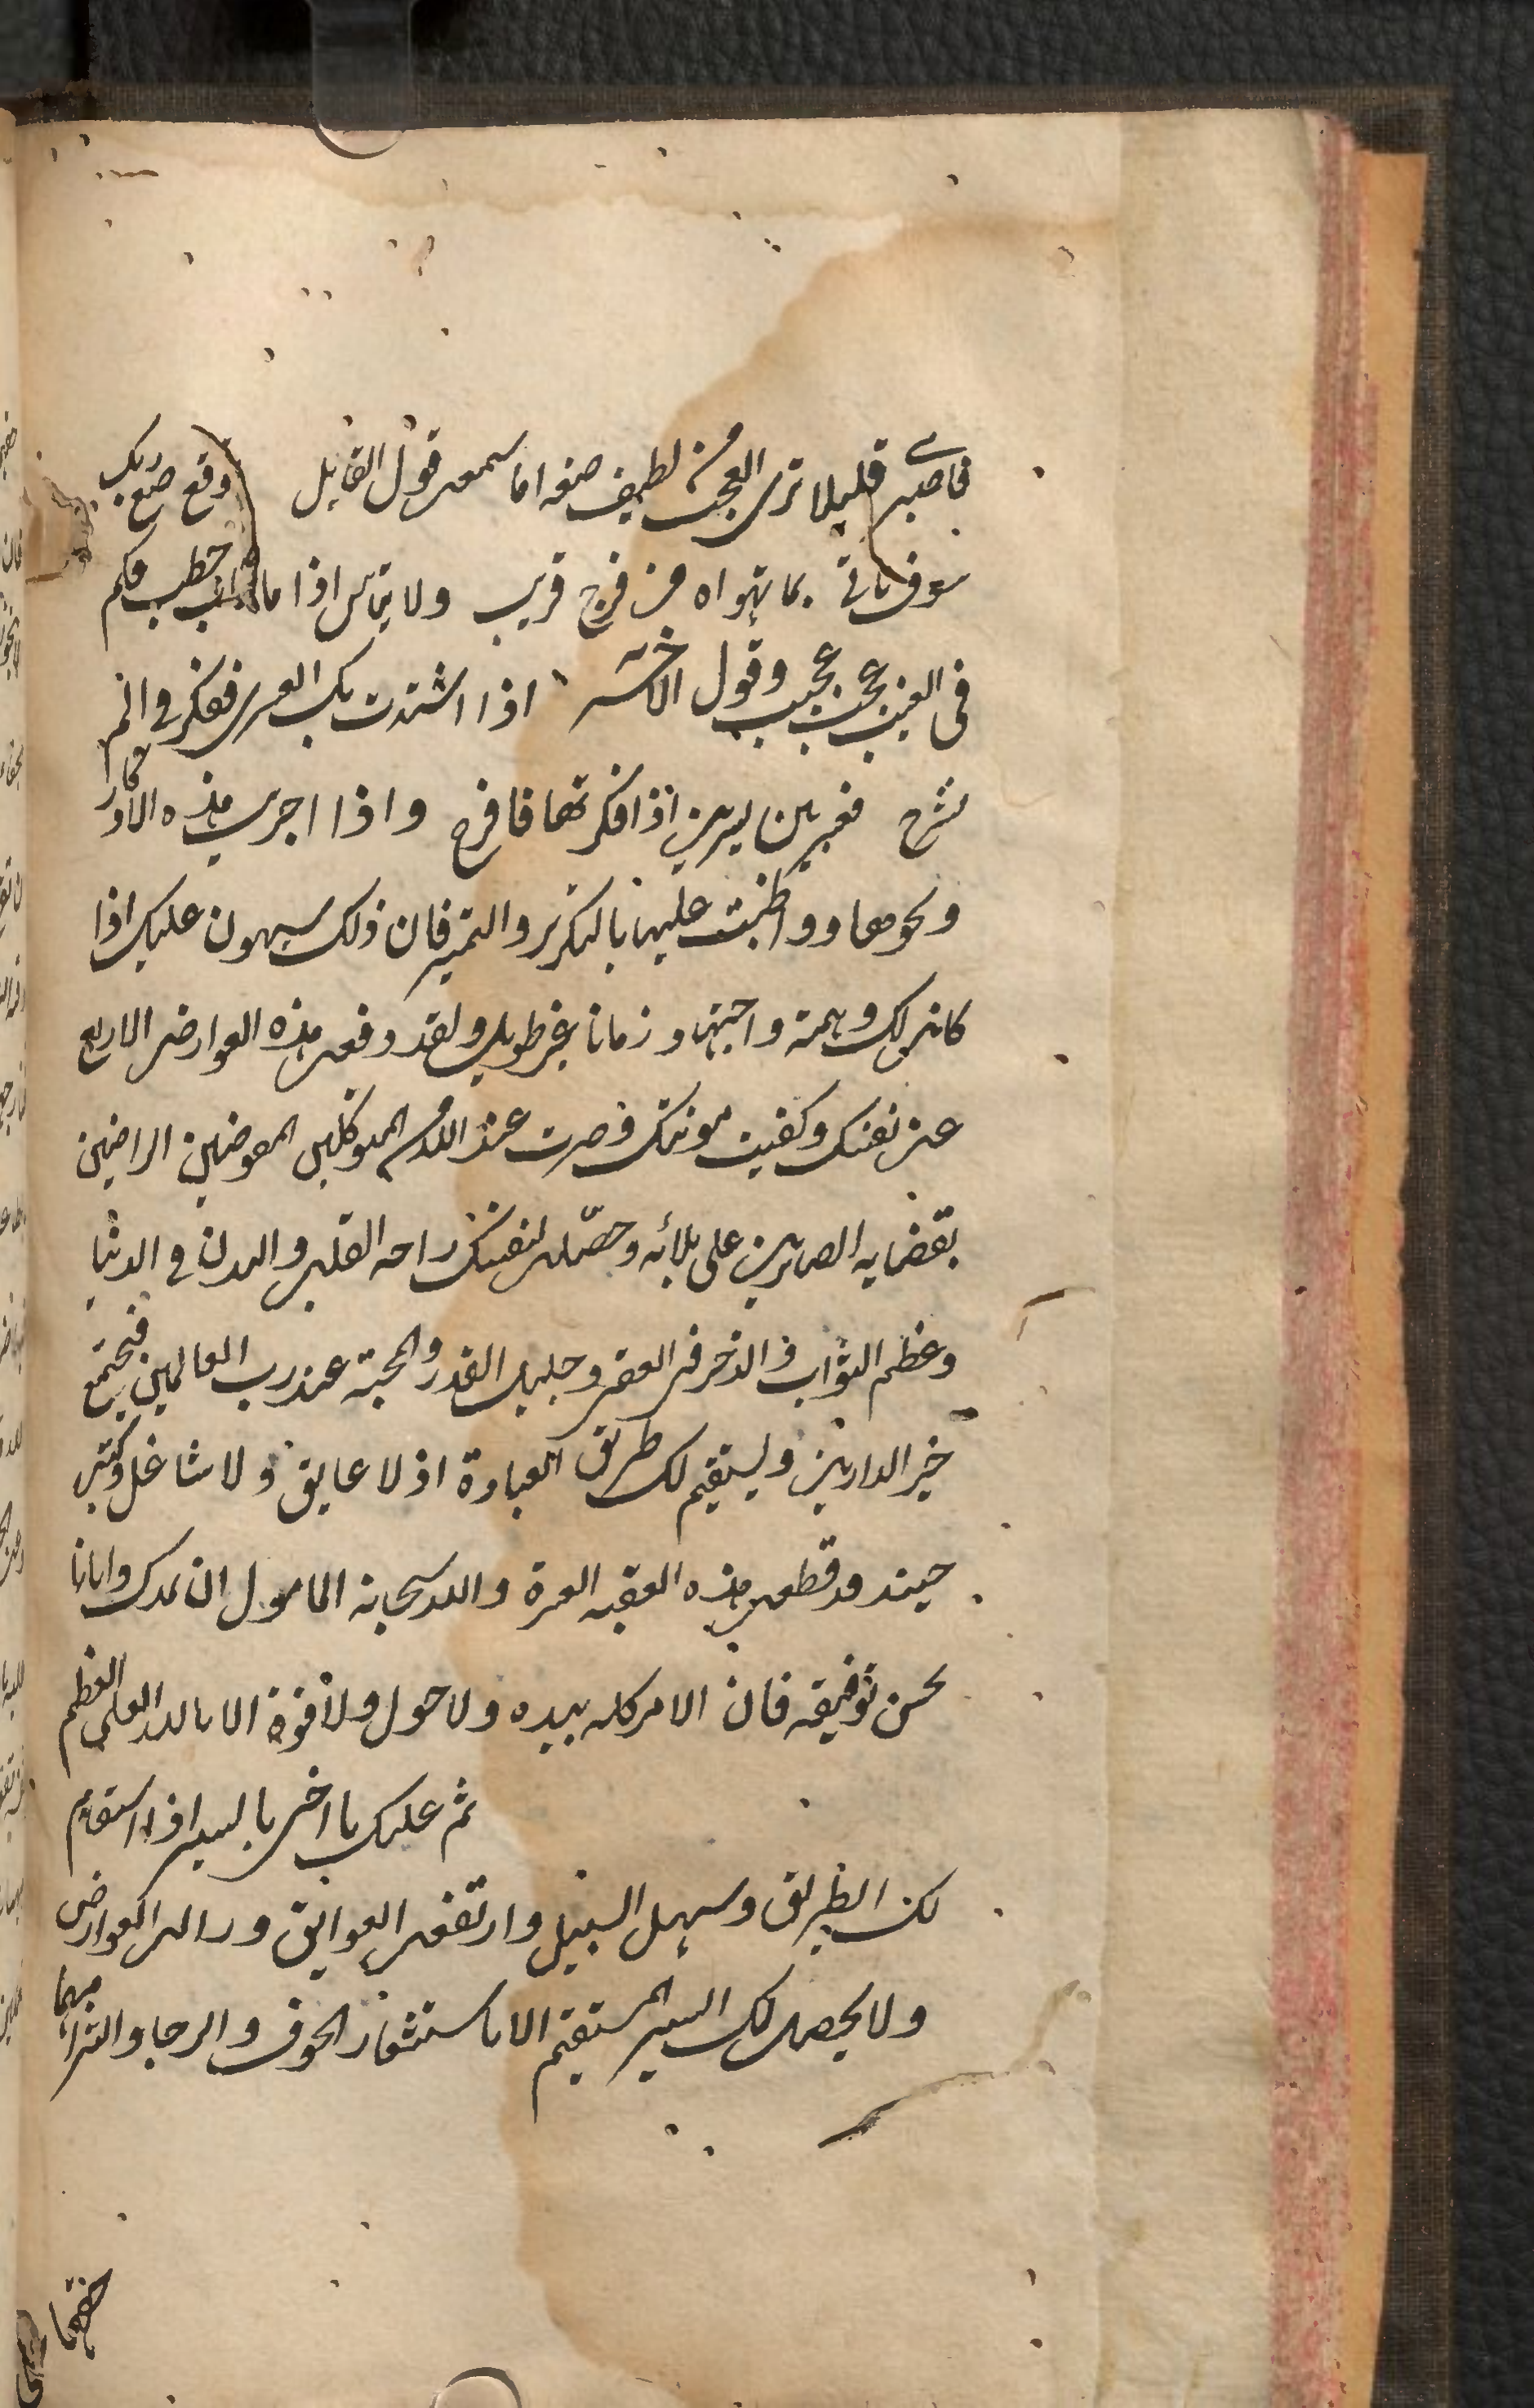 فاصبري قليلا ترى العجب من لطيف صنعه اما سمعت قول القايل وقع صنع ربك
سوف ياتي بما تهواه من فرج قريب ولا تياس اذا ما ناب خطب فكم
في الغيب عجب عجيب وقول الاخر اذا اشتدت بك العسرى ففكر في الم
نشرح فعسر بين يسرين اذا فكرتها فافرح واذا اجريت هذه الاذكار
ونحوها وواظبت عليها بالتكرير والتمرن فان ذلك سيهون عليك اذا
كانت لك همة واجتهاد زمانا غير طويل ولقد دفعت هذه العوارض الاربع
عن نفسك وكفيت مونتك وصرت عند الله من المتوكلين المفوضين الراضين
بقضايه الصابرين على بلائه وحصلت لنفسك راحه القلب والبدن في الدنيا
وعظم الثواب والذخر في العقبى وجليل القدر والمحبة عند رب العالمين فيجتمع
خير الدارين ويستقيم لك طريق العبادة اذ لا عايق ولا شاغل وكنت
حينئذ قد قطعت هذه العقبه العسرة والله سبحانه المامول ان يمدك وايانا
بحسن توفيقه فان الامر كله بيده ولا حول ولا قوة الا بالله العلى العظيم
ثم عليك يا اخى بالسير اذا استقام
لك الطريق وسهل السبيل وارتفعت العوايق وزالت العوارض
ولا يحصل لك السير المستقيم الا باستشعار الخوف والرجا والتزامهما
حقهما